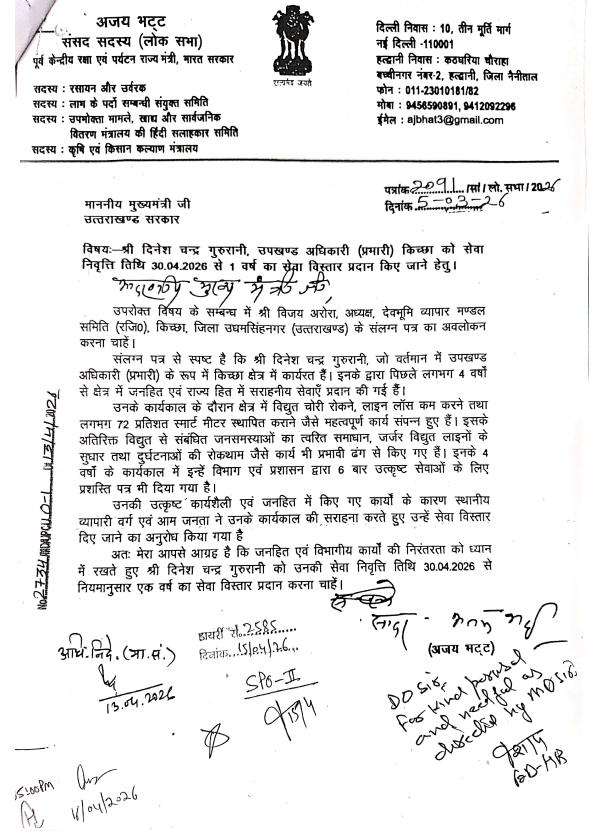 अजय भट्ट
संसद सदस्य (लोक सभा)
पूर्व केन्द्रीय रक्षा एवं पर्यटन राज्य मंत्री, भारत सरकार
सदस्य : रसायन और उर्वरक
सदस्य : लाभ के पदों सम्बन्धी संयुक्त समिति
सदस्य : उपभोक्ता मामले, खाद्य और सार्वजनिक
वितरण मंत्रालय की हिंदी सलाहकार समिति
सदस्य : कृषि एवं किसान कल्याण मंत्रालय
सत्यमेव जयते
दिल्ली निवास : 10, तीन मूर्ति मार्ग
नई दिल्ली -110001
हल्द्वानी निवास : कठघरिया चौराहा
बच्चीनगर नंबर-2, हल्द्वानी, जिला नैनीताल
फोन : 011-23010181/82
मोबा : 9456590891, 9412092296
ईमेल : ajbhat3@gmail.com
पत्रांक 2091/सां/लो. सभा/2026
दिनांक 5-03-26
माननीय मुख्यमंत्री जी
उत्तराखण्ड सरकार
विषयः—श्री दिनेश चन्द्र गुरुरानी, उपखण्ड अधिकारी (प्रभारी) किच्छा को सेवा
निवृत्ति तिथि 30.04.2026 से 1 वर्ष का सेवा विस्तार प्रदान किए जाने हेतु।
आदरणीय मुख्य मंत्री जी,
उपरोक्त विषय के सम्बन्ध में श्री विजय अरोरा, अध्यक्ष, देवभूमि व्यापार मण्डल
समिति (रजि0), किच्छा, जिला उधमसिंहनगर (उत्तराखण्ड) के संलग्न पत्र का अवलोकन
करना चाहें।
संलग्न पत्र से स्पष्ट है कि श्री दिनेश चन्द्र गुरुरानी, जो वर्तमान में उपखण्ड
अधिकारी (प्रभारी) के रूप में किच्छा क्षेत्र में कार्यरत हैं। इनके द्वारा पिछले लगभग 4 वर्षो
से क्षेत्र में जनहित एवं राज्य हित में सराहनीय सेवाएँ प्रदान की गई हैं।
उनके कार्यकाल के दौरान क्षेत्र में विद्युत चोरी रोकने, लाइन लॉस कम करने तथा
लगभग 72 प्रतिशत स्मार्ट मीटर स्थापित कराने जैसे महत्वपूर्ण कार्य संपन्न हुए हैं। इसके
अतिरिक्त विद्युत से संबंधित जनसमस्याओं का त्वरित समाधान, जर्जर विद्युत लाइनों के
सुधार तथा दुर्घटनाओं की रोकथाम जैसे कार्य भी प्रभावी ढंग से किए गए हैं। इनके 4
वर्षो के कार्यकाल में इन्हें विभाग एवं प्रशासन द्वारा 6 बार उत्कृष्ट सेवाओं के लिए
प्रशस्ति पत्र भी दिया गया है।
उनकी उत्कृष्ट कार्यशैली एवं जनहित में किए गए कार्यो के कारण स्थानीय
व्यापारी वर्ग एवं आम जनता ने उनके कार्यकाल की सराहना करते हुए उन्हें सेवा विस्तार
दिए जाने का अनुरोध किया गया है
अतः मेरा आपसे आग्रह है कि जनहित एवं विभागीय कार्यो की निरंतरता को ध्यान
में रखते हुए श्री दिनेश चन्द्र गुरुरानी को उनकी सेवा निवृत्ति तिथि 30.04.2026 से
नियमानुसार एक वर्ष का सेवा विस्तार प्रदान करना चाहें।
सादर
(अजय भट्ट)
अधि.निदे.(मा.सं.)
13.04.2026
डायरी सं. 2585
दिनांक 15/04/26
SPO-II
15/4
DO Sir,
For kind perusal
and needful as
directed by MD Sir.
5:00PM
18/04/2026